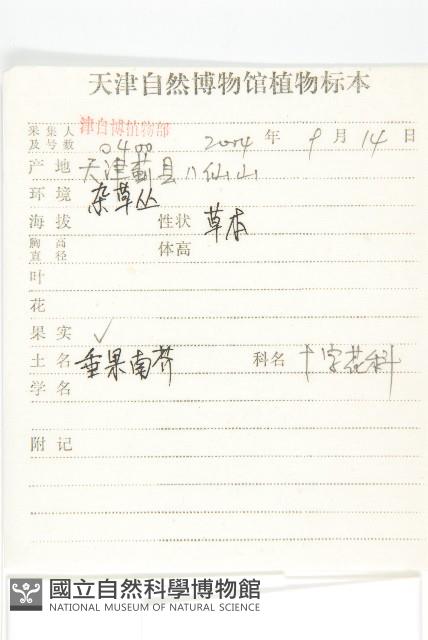 天津自然博物馆植物标本
采集人及号数 津自博植物部 0400 2004年9月14日
产地 天津蓟县八仙山
环境 杂草丛
海拔 性状 草本
胸高直径 体高
叶
花
果实 ✓
土名 垂果南芥 科名 十字花科
学名
附记
國立自然科學博物館
NATIONAL MUSEUM OF NATURAL SCIENCE